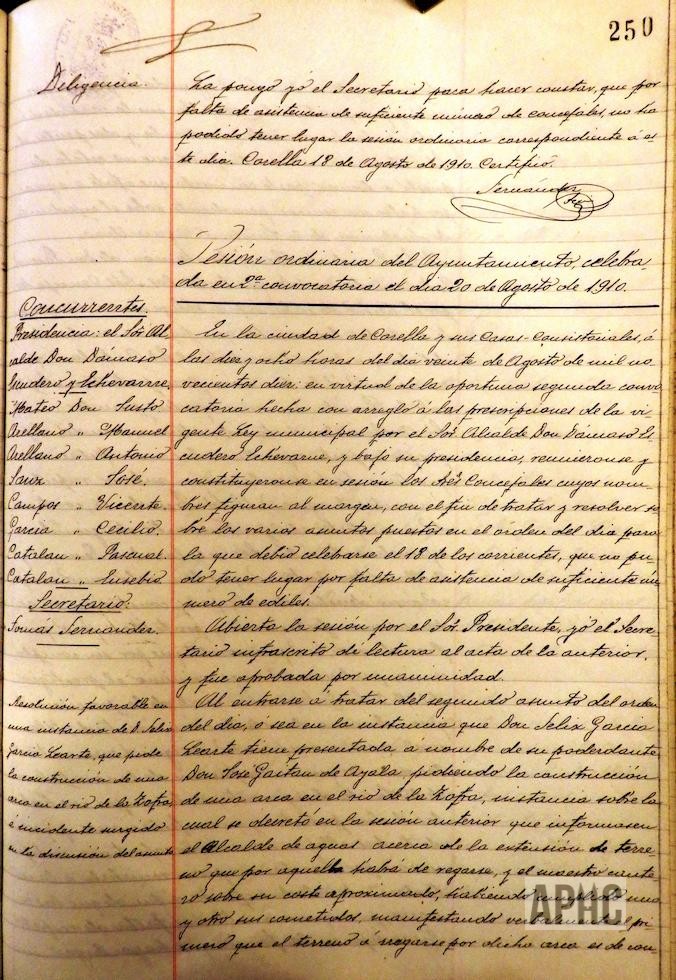 250
Diligencia.
La pongo yó el Secretario para hacer constar, que por
falta de asistencia de suficiente número de concejales, no ha
podido tener lugar la sesión ordinaria correspondiente á es-
te dia. Corella 18 de Agosto de 1910. Certifico.
Fernandez
Sesión ordinaria del Ayuntamiento, celebra-
da en 2ª convocatoria el dia 20 de Agosto de 1910.
Concurrentes.
Presidencia: el Sor. Al-
calde Don Dámaso
Escudero y Echevarne.
Mateo Don Justo
Arellano " Manuel
Arellano " Antonio
Sanz " José.
Campos " Vicente.
Garcia " Cecilio.
Catalan " Pascual.
Catalan " Eusebio
Secretario:
Tomás Fernandez.
En la ciudad de Corella y sus Casas-Consistoriales, á
las diez y ocho horas del dia veinte de Agosto de mil no-
vecientos diez: en virtud de la oportuna segunda convo-
catoria hecha con arreglo á las prescripciones de la vi-
gente Ley municipal por el Sor. Alcalde Don Dámaso Es-
cudero Echevarne, y bajo su presidencia, reuniéronse y
constituyeronse en sesión los Sres. Concejales cuyos nom-
bres figuran al margen, con el fin de tratar y resolver so-
bre los varios asuntos puestos en el órden del dia para
la que debió celebrarse el 18 de los corrientes, que no pu-
do tener lugar por falta de asistencia de suficiente nú-
mero de ediles.
Abierta la sesión por el Sor. Presidente, yó el Secre-
tario infrascrito dí lectura al acta de la anterior,
y fue aprobada por unanimidad.
Resolución favorable en
una instancia de D. Felix
Garcia Learte, que pide
la construcción de una
arca en el rio de la Zofra,
é incidente surgido
en la discusión del asunto.
Al entrarse á tratar del segundo asunto del orden
del dia, ó sea en la instancia que Don Felix Garcia
Learte tiene presentada á nombre de su poderdante
Don José Gaitan de Ayala, pidiendo la construcción
de una arca en el rio de la Zofra, instancia sobre la
cual se decretó en la sesión anterior que informasen
el Alcalde de aguas acerca de la extensión de terre-
no que por aquella habrá de regarse, y el maestro cante-
ro sobre su coste aproximado, habiendo cumplido uno
y otro sus cometidos, manifestando verbalmente el pri-
mero que el terreno á regarse por dicha arca es de cua-
APHC